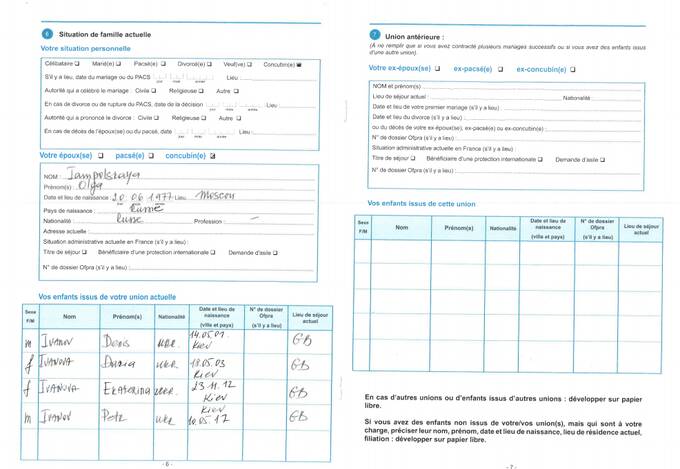 6 Situation de famille actuelle
Votre situation personnelle
Célibataire ❑ Marié(e) ❑ Pacsé(e) ❑ Divorcé(e) ❑ Veuf(ve) ❑ Concubin(e)
S'il y a lieu, date du mariage ou du PACS Lieu :
jour mois année
Autorité qui a célébré le mariage : Civile ❑ Religieuse ❑ Autre ❑
En cas de divorce ou de rupture du PACS, date de la décision Lieu :
jour mois année
Autorité qui a prononcé le divorce : Civile ❑ Religieuse ❑ Autre ❑
En cas de décès de l'époux(se) ou du pacsé, date Lieu :
jour mois année
Votre époux(se) ❑ pacsé(e) ❑ concubin(e) ☑
NOM : Jampolskaya
Prénom(s) : Olga
Date et lieu de naissance : 20 06 1977 Lieu : Moscou
Pays de naissance :
Nationalité : Russe Profession : –
Adresse actuelle :
Situation administrative actuelle en France (s'il y a lieu) :
Titre de séjour ❑ Bénéficiaire d'une protection internationale ❑ Demande d'asile ❑
N° de dossier Ofpra (s'il y a lieu) :
Vos enfants issus de votre union actuelle
Sexe F/M Nom Prénom(s) Nationalité Date et lieu de naissance (ville et pays) N° de dossier Ofpra (s'il y a lieu) Lieu de séjour actuel
m Ivanov Denis UKR. 14.05.01 Kiev GB
f Ivanova Daria UKR 18.05.03 Kiev GB
f Ivanova Ekaterina UKR. 23.11.12 Kiev GB
m Ivanov Petr UKR Kiev 10.05.17 GB
- 6 -
7 Union antérieure :
(A ne remplir que si vous avez contracté plusieurs mariages successifs ou si vous avez des enfants issus
d'une autre union).
Votre ex-époux(se) ❑ ex-pacsé(e) ❑ ex-concubin(e) ❑
NOM et prénom(s) :
Lieu de séjour actuel : Nationalité :
Date et lieu de votre premier mariage (s'il y a lieu) :
Date et lieu du divorce (s'il y a lieu) :
ou du décès de votre ex-époux(se), ex-pacsé(e) ou ex-concubin(e) :
Situation administrative actuelle en France (s'il y a lieu) :
Titre de séjour ❑ Bénéficiaire d'une protection internationale ❑ Demande d'asile ❑
N° de dossier Ofpra (s'il y a lieu) :
Vos enfants issus de cette union
Sexe F/M Nom Prénom(s) Nationalité Date et lieu de naissance (ville et pays) N° de dossier Ofpra (s'il y a lieu) Lieu de séjour actuel
En cas d'autres unions ou d'enfants issus d'autres unions : développer sur papier
libre.
Si vous avez des enfants non issus de votre/vos union(s), mais qui sont à votre
charge, préciser leur nom, prénom, date et lieu de naissance, lieu de résidence actuel,
filiation : développer sur papier libre.
- 7 -